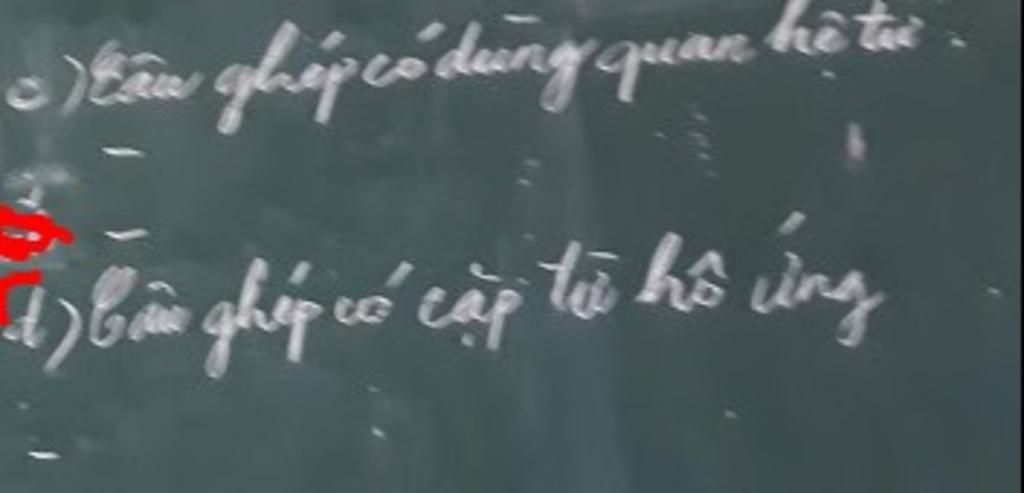 c) Câu ghép có dùng quan hệ từ.
-
-
d) Câu ghép có cặp từ hô ứng
-